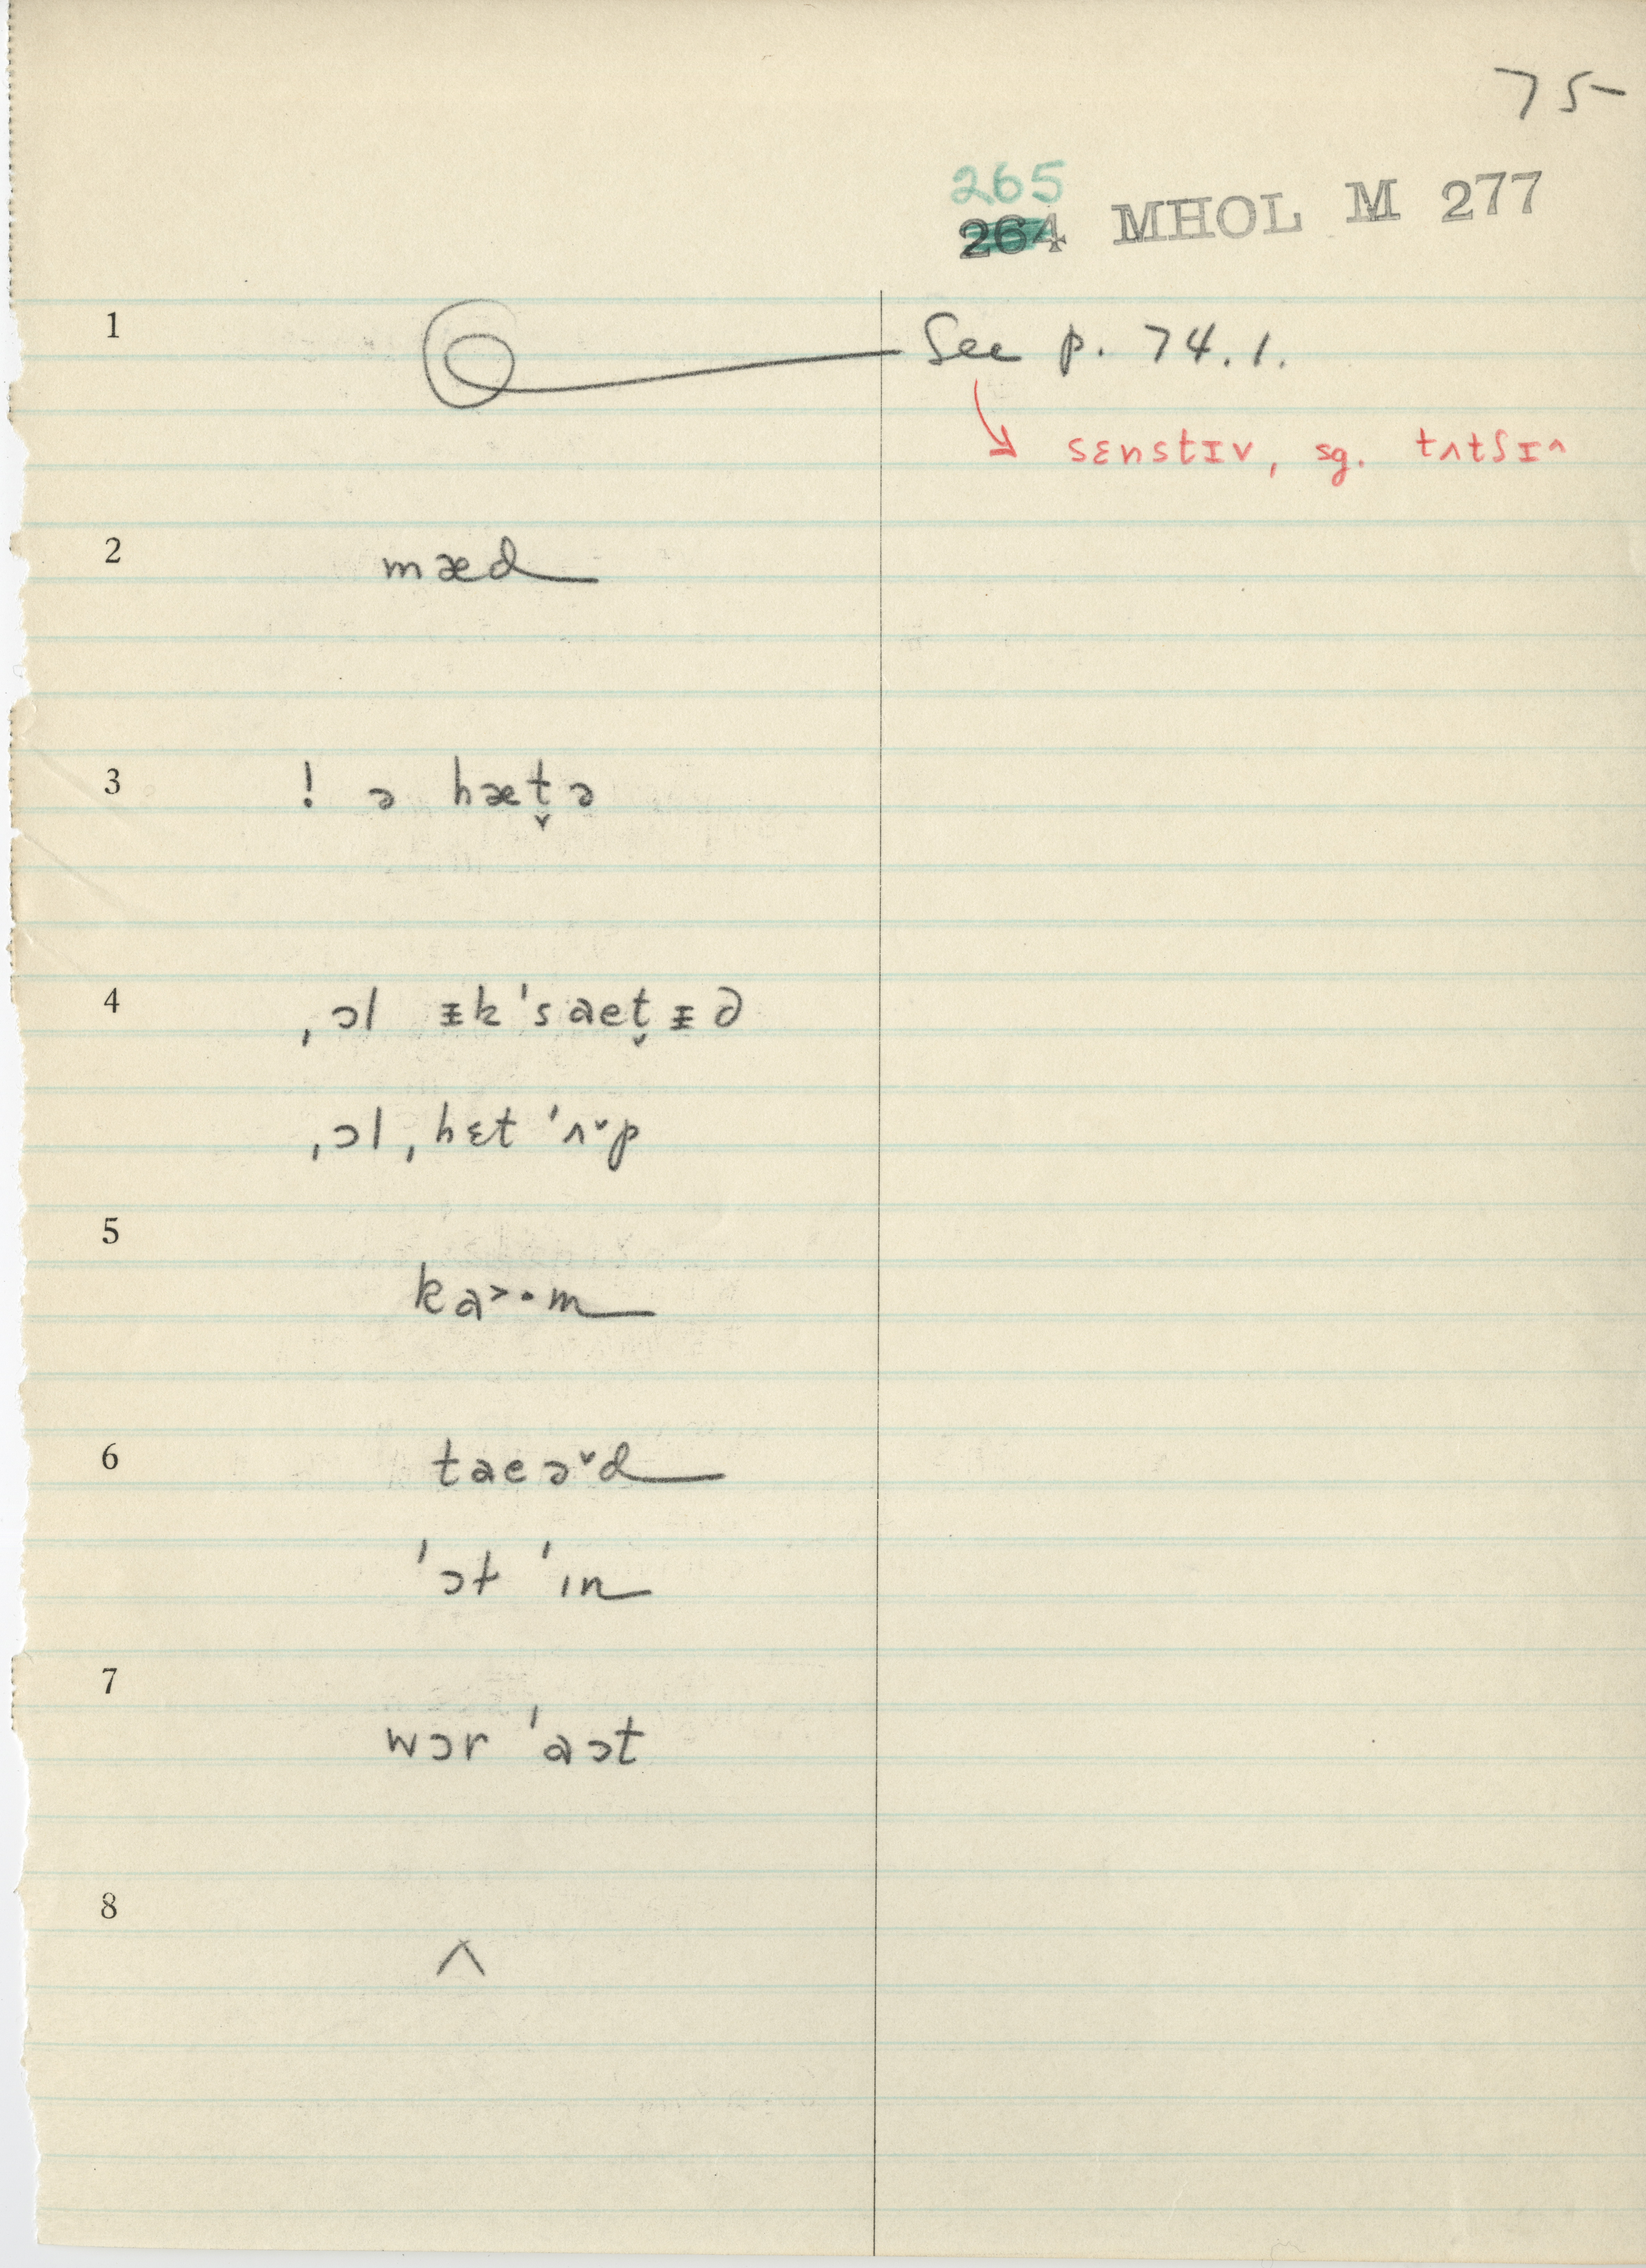 75
265
264 MHOL M 277
1 See p. 74.1.
sɛnstɪv, sg. tʌtʃɪ^
2 mæd
3 ! ə hæt̬ə
4 ˌɔl ᵻk'saet̬ᵻd
ˌɔl ˌhɛt 'ʌ˅p
5 ka˃·m
6 taeə˅d
'ɔt 'ɪn
7 wɔr 'aɔt
8 ʌ